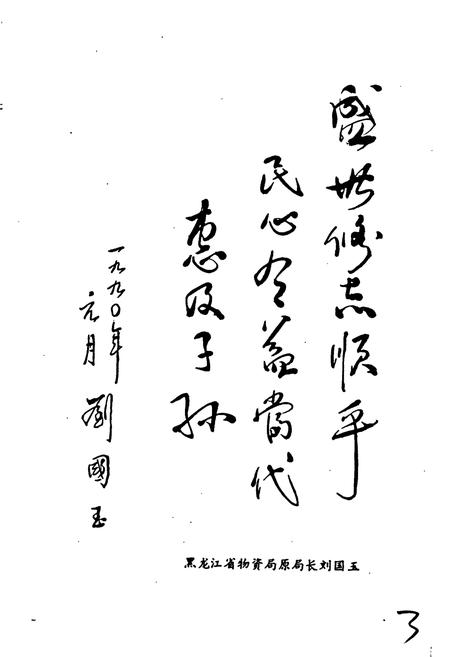 盛世修志顺乎
民心有益當代
惠及子孙
一九九〇年
元月 劉國玉
黑龙江省物资局原局长刘国玉
3